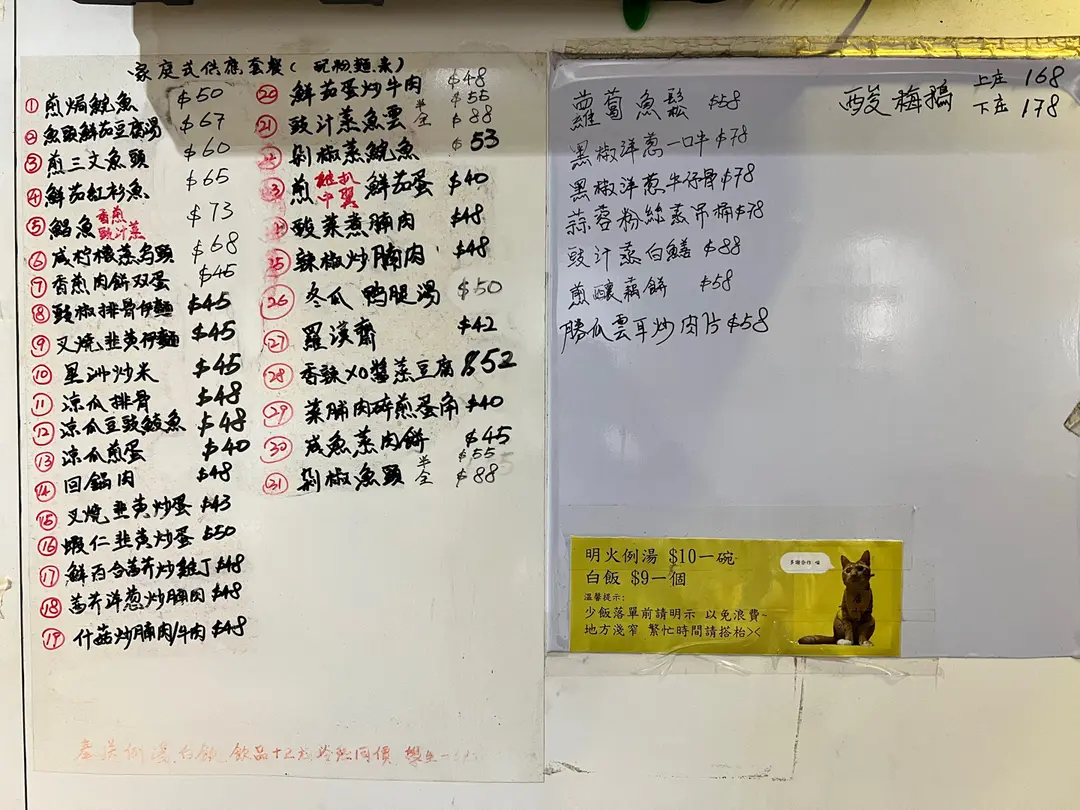 家庭式供應套餐(配粉麵菜)
① 煎焗鯇魚 $50
② 魚頭鮮茄豆腐湯 $67
③ 煎三文魚頭 $60
④ 鮮茄紅衫魚 $65
⑤ 鯧魚 香煎 豉汁蒸 $73
⑥ 咸柠檬蒸烏頭 $68
⑦ 香煎肉餅双蛋 $45
⑧ 豉椒排骨伊麵 $45
⑨ 叉燒韭黃伊麵 $45
⑩ 星洲炒米 $45
11 涼瓜排骨 $48
12 涼瓜豆豉鯪魚 $48
13 涼瓜煎蛋 $40
14 回鍋肉 $48
15 叉燒韭黃炒蛋 $43
16 蝦仁韭黃炒蛋 $50
17 鮮百合蒥芹炒雞丁 $48
18 芹洋葱炒腩肉 $48
19 什菇炒腩肉/牛肉 $48
20 鮮茄蛋炒牛肉 $48
21 豉汁蒸魚雲 半 $55 全 $88
剁椒蒸鯇魚 $53
3 煎 雞扒 中翼 鮮茄蛋 $40
豉菜煮腩肉 $48
25 辣椒炒腩肉 $48
26 冬瓜鴨腿湯 $50
27 羅漢齋 $42
28 香辣XO醬蒸豆腐 $52
29 菜脯肉碎煎蛋角 $40
30 咸魚蒸肉餅 $45
31 剁椒魚頭 半 $55 全 $88
套送例湯.白飯,飲品+三元 冷熱同價 學生一
蘿蔔魚鬆 $58
黑椒洋葱一口牛 $78
黑椒洋葱牛仔骨 $78
蒜蓉粉絲蒸吊桶 $78
豉汁蒸白鱔 $88
煎釀藕餅 $58
勝瓜雲耳炒肉片 $58
酸梅鵝 上庄 168
下庄 178
明火例湯 $10一碗
白飯 $9一個
溫馨提示:
少飯落單前請明示 以免浪費~
地方淺窄 繁忙時間請搭枱><
多謝合作 喵